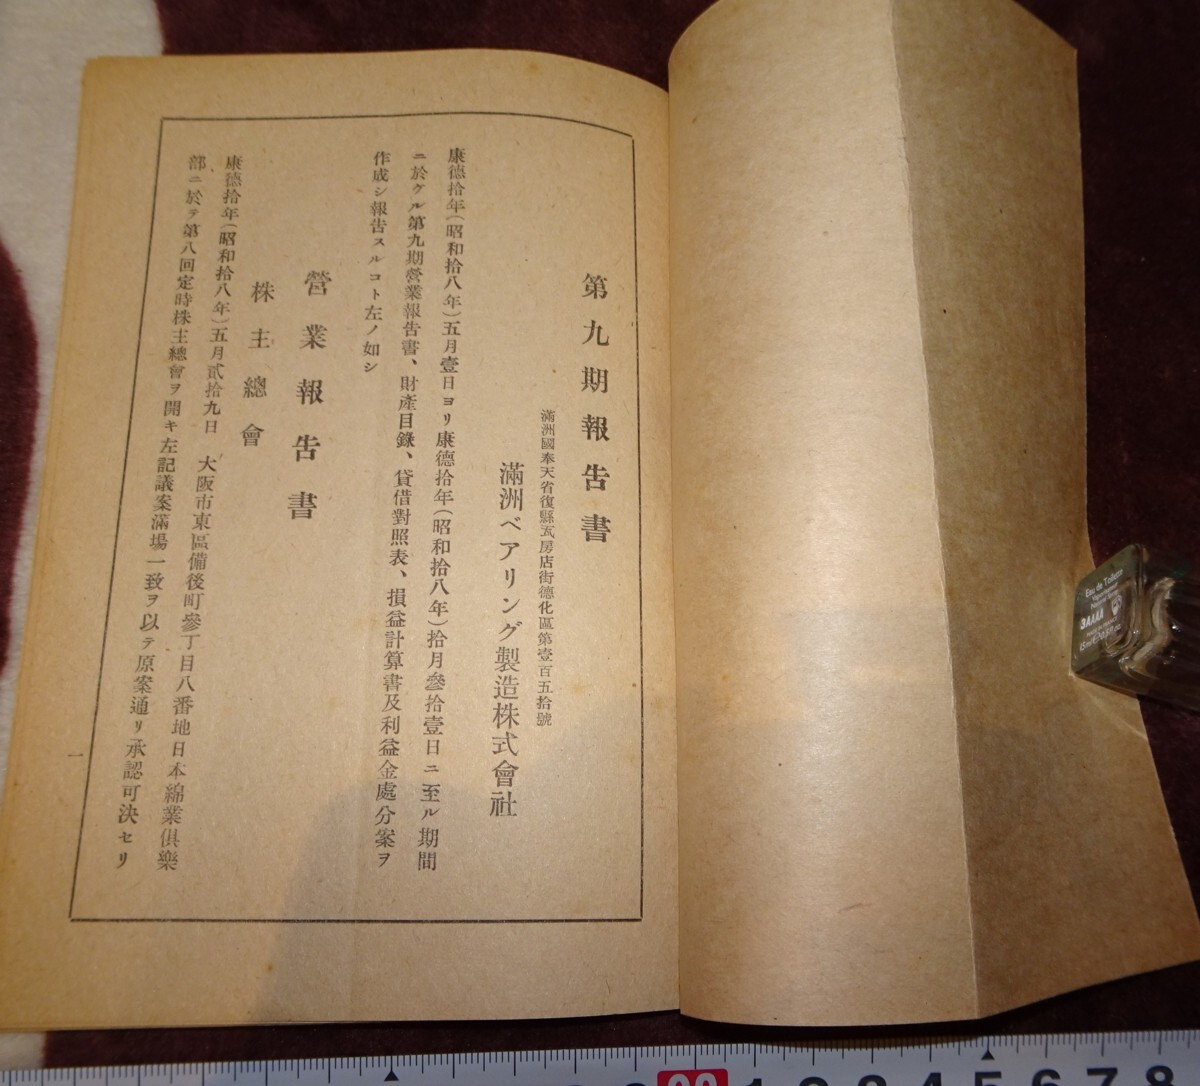 第九期報告書
滿洲國奉天省復縣瓦房店街德化區第壹百五拾號
滿洲ベアリング製造株式會社
康德拾年(昭和拾八年)五月壹日ヨリ康德拾年(昭和拾八年)拾月參拾壹日ニ至ル期間
ニ於グル第九期營業報告書、財產目錄、貸借對照表、損益計算書及利益金處分案ヲ
作成シ報告スルコト左ノ如シ
營業報告書
株主總會
康德拾年(昭和拾八年)五月貳拾九日 大阪市東區備後町參丁目八番地日本綿業俱樂
部ニ於テ第八回定時株主總會ヲ開キ左記議案滿場一致ヲ以テ原案通リ承認可決セリ
一
Eau de Toilette
Natural Spray
15ml
1 2 3 4 5 6 7 8